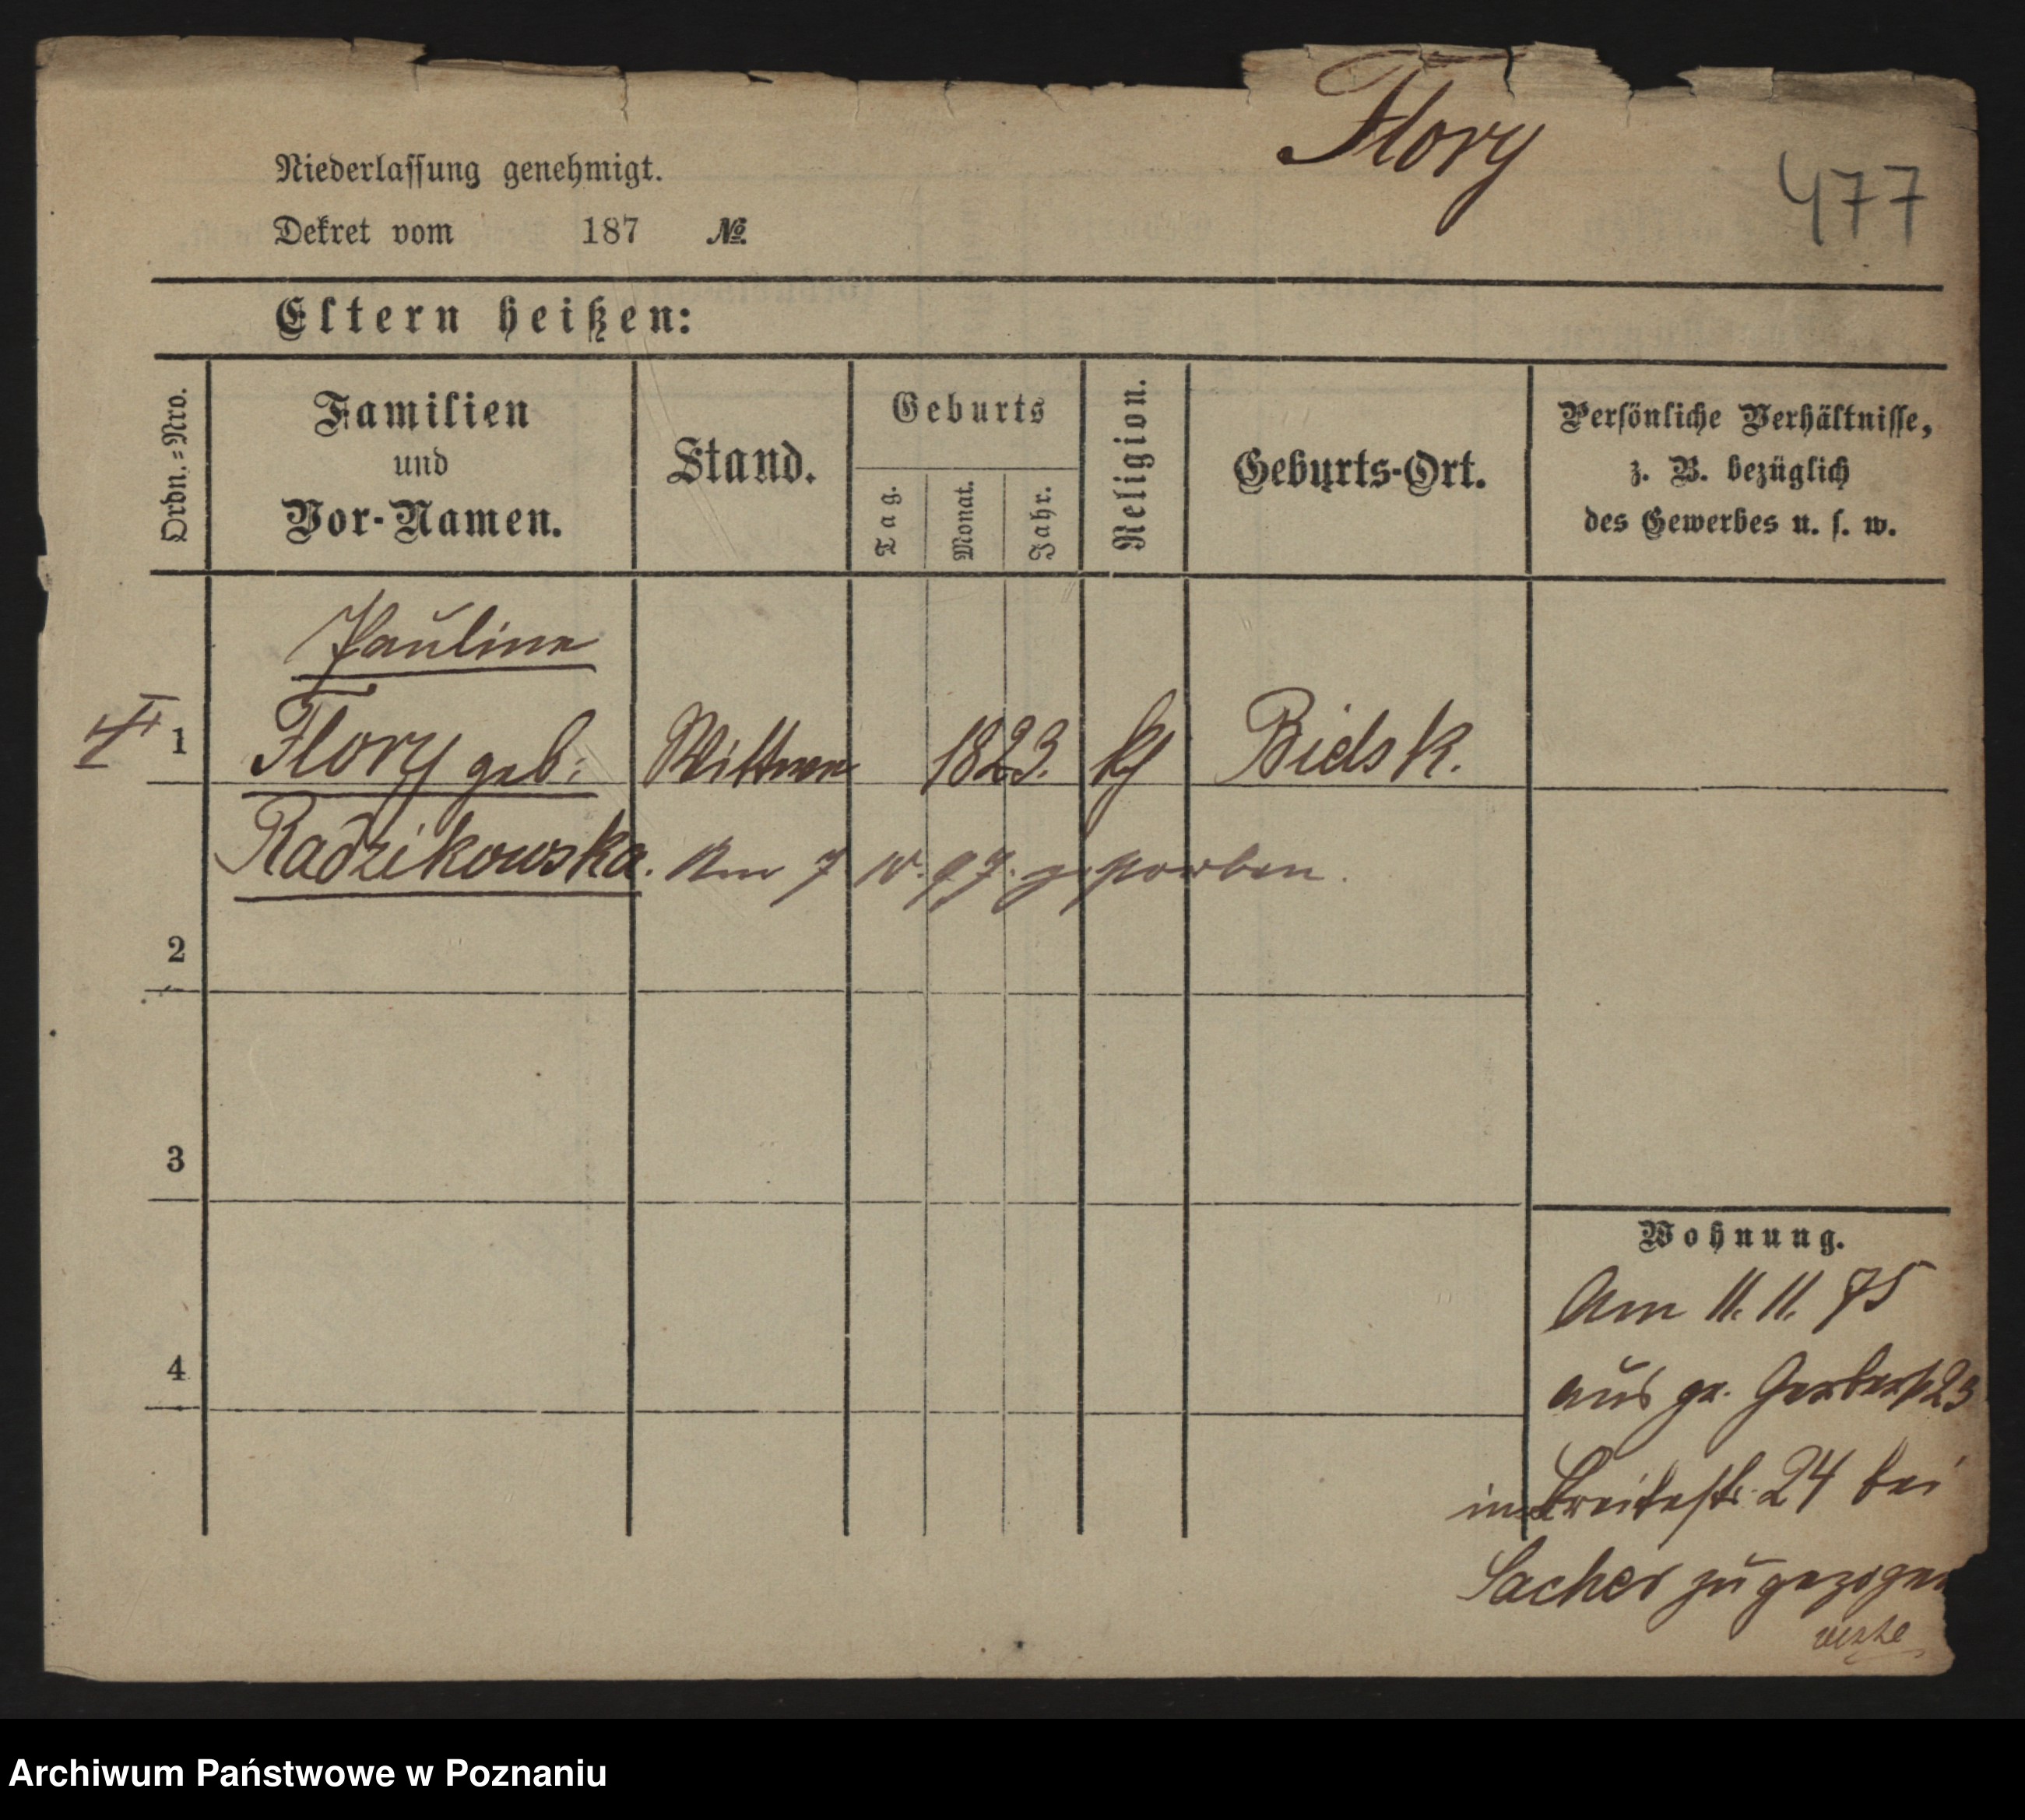 Flory
477
Niederlassung genehmigt.
Dekret vom 187 №
Eltern heißen:
Ordn.=Nro.
Familien
und
Vor-Namen.
Stand.
Geburts
Tag.
Monat.
Jahr.
Religion.
Geburts-Ort.
Persönliche Verhältnisse,
z. B. bezüglich
des Gewerbes u. s. w.
Pauline
1 Flory geb: Wittwe 1823. Bidsk.
Radzikowska. Am 7 97. gestorben.
2
3
4
Wohnung.
Am 11. 11. 75
aus gr. Gerberst 23
in Breitestr. 24 bei
Sacher zugezogen
Archiwum Państwowe w Poznaniu